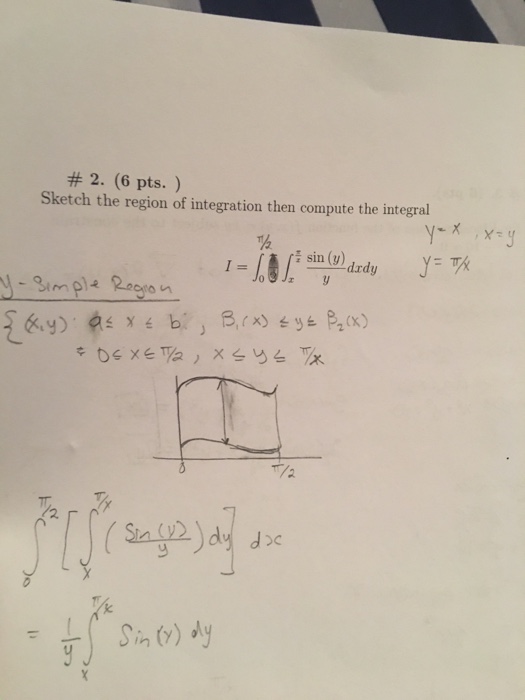 # 2. (6 pts. )
Sketch the region of integration then compute the integral
y = x , x = y
I = ∫₀^{π/2} ∫ₓ^{π/2} sin (y)/y dxdy
y = π/x
y-Simple Region
{(x,y): a ≤ x ≤ b , β₁(x) ≤ y ≤ β₂(x)
0 ≤ x ≤ π/2 , x ≤ y ≤ π/x
0 π/2
∫₀^{π/2} [∫ₓ^{π/x} (sin(y)/y) dy] dx
= 1/y ∫ₓ^{π/x} Sin(y) dy